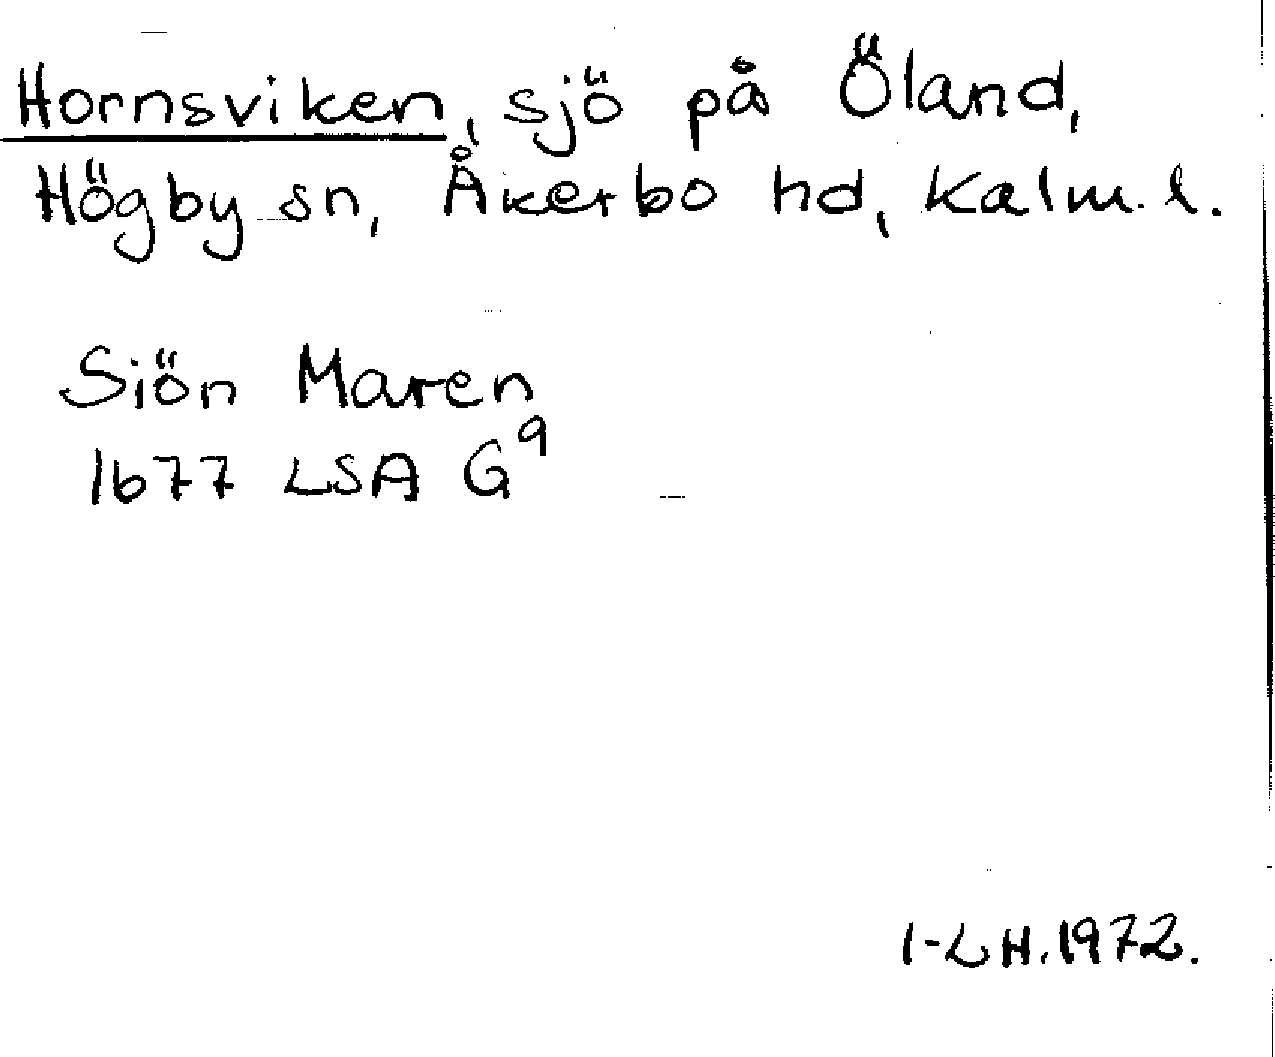 Hornsviken, sjö på Öland,
Högby sn, Åkerbo hd, Kalm. l.
Siön Maren
1677 LSA G9
I-LH. 1972.